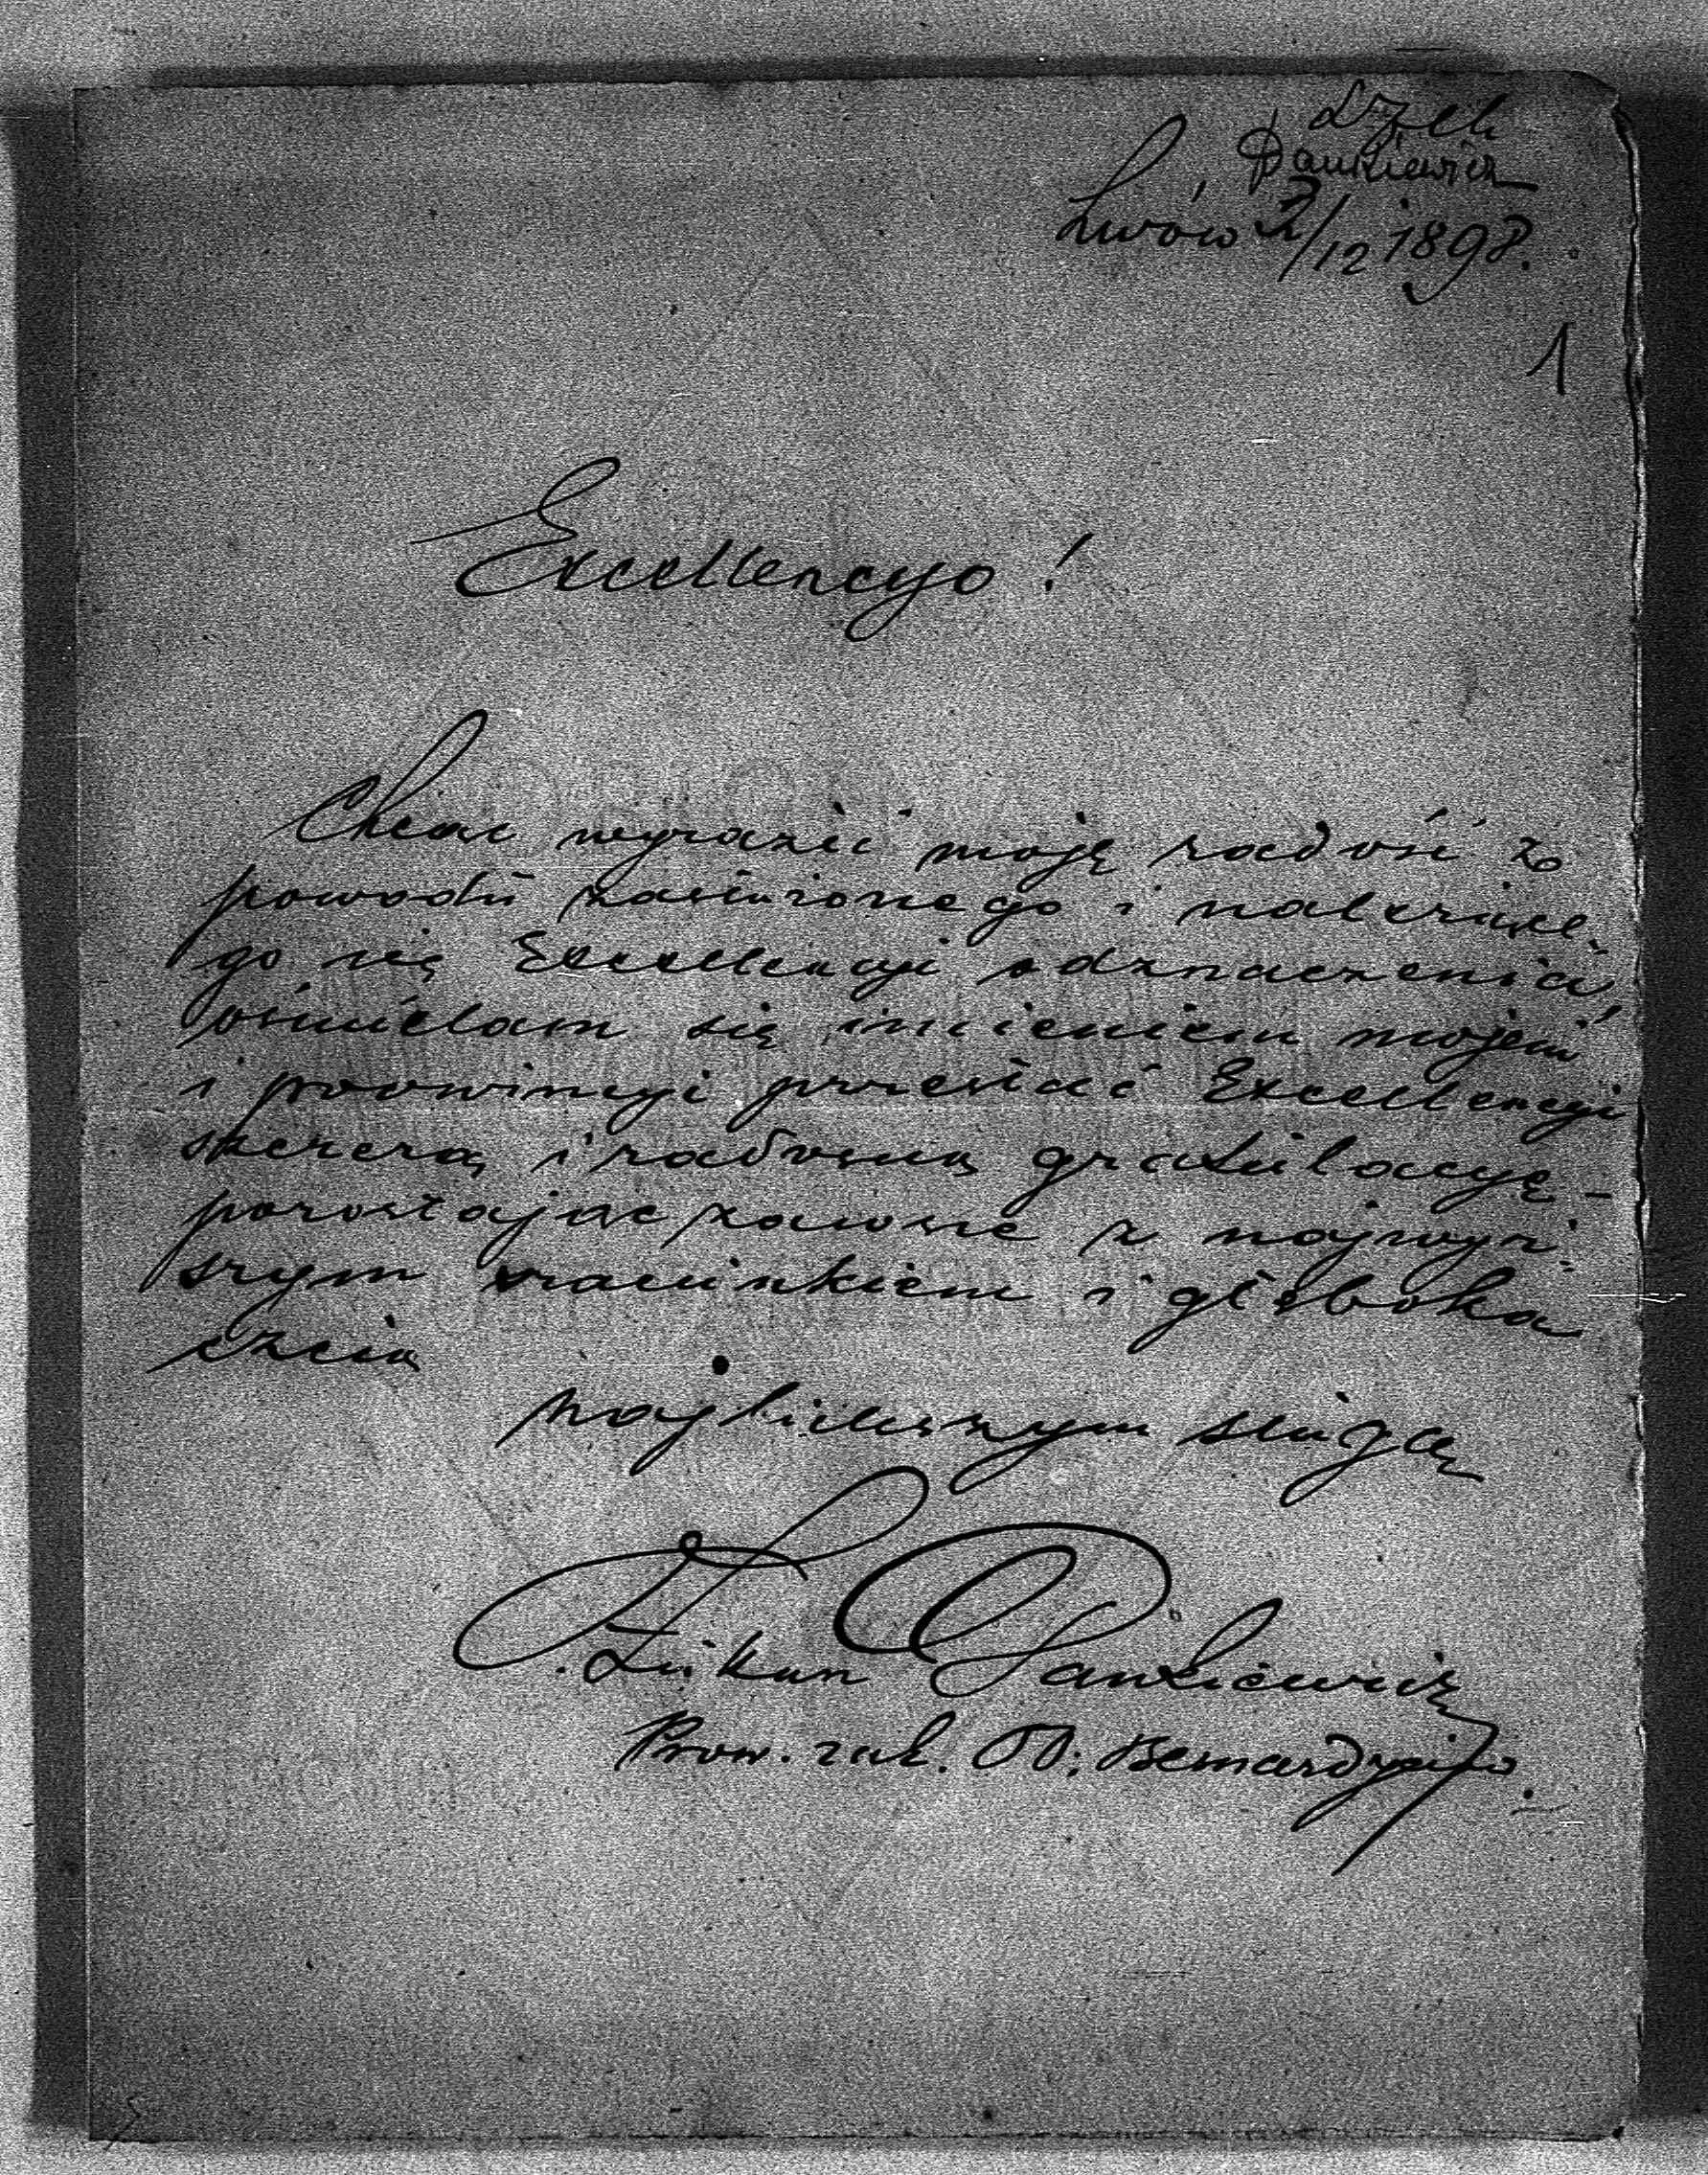 Dankiewicz
Lwów 2/12 1898.
1
Excellencyo!
Chcąc wyrazić moję radość z
powodu zasłużonego i należące-
go się Excellencyi odznaczenia,
ośmielam się imieniem mojem
i prowincyi przesłać Excellencyi
szczerą i radosną gratulacyę -
pozostając zawsze z najwyż-
szym szacunkiem i głęboka
czcią
najniższym sługą
Dankiewicz
Prow. zak. OO. Bernardynów.